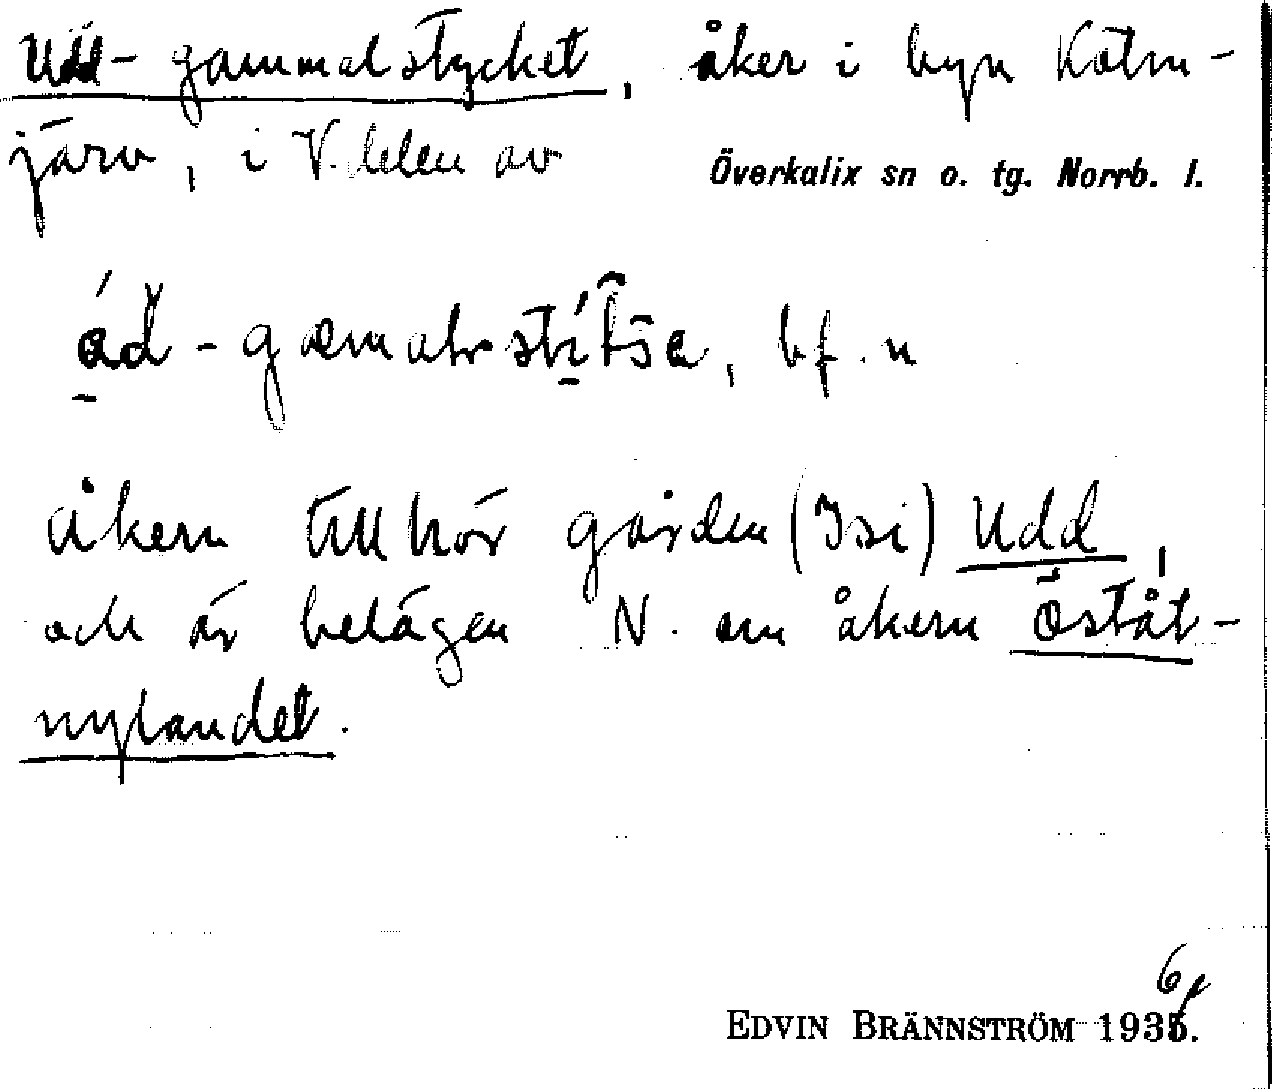 Udd-gammalstycket, åker i byn Katm-
järv, i V. delen av
Överkalix sn o. tg. Norrb. l.
bf. n
åkern tillhör gården (Isi) Udd,
och är belägen N. om åkern öståt-
nylandet.
6
EDVIN BRÄNNSTRÖM 1935.